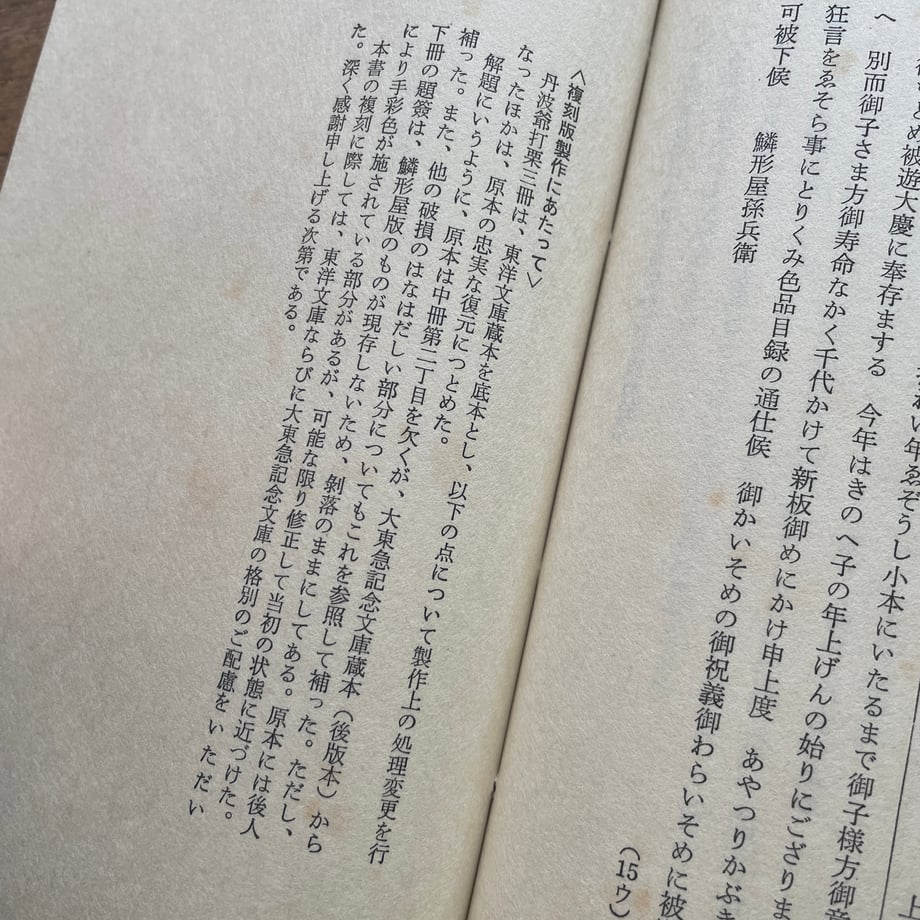 れい年ゑそうし小本にいたるまで御子様方御音
とめ被遊大慶に奉存まする　今年はきのへ子の年上げんの始りにござりま
へ　別而御子さま方御寿命なかく千代かけて新板御めにかけ申上度　あやつりかぶき
狂言をゑそら事にとりくみ色品目録の通仕候　御かいそめの御祝義御わらいそめに被
可被下候　　鱗形屋孫兵衛
（15ウ）
〈複刻版製作にあたって〉
丹波爺打栗三冊は、東洋文庫蔵本を底本とし、以下の点について製作上の処理変更を行
なったほかは、原本の忠実な復元につとめた。
解題にいうように、原本は中冊第二丁目を欠くが、大東急記念文庫蔵本（後版本）から
補った。また、他の破損のはなはだしい部分についてもこれを参照して補った。ただし、
下冊の題簽は、鱗形屋版のものが現存しないため、剝落のままにしてある。原本には後人
により手彩色が施されている部分があるが、可能な限り修正して当初の状態に近づけた。
本書の複刻に際しては、東洋文庫ならびに大東急記念文庫の格別のご配慮をいただい
た。深く感謝申し上げる次第である。